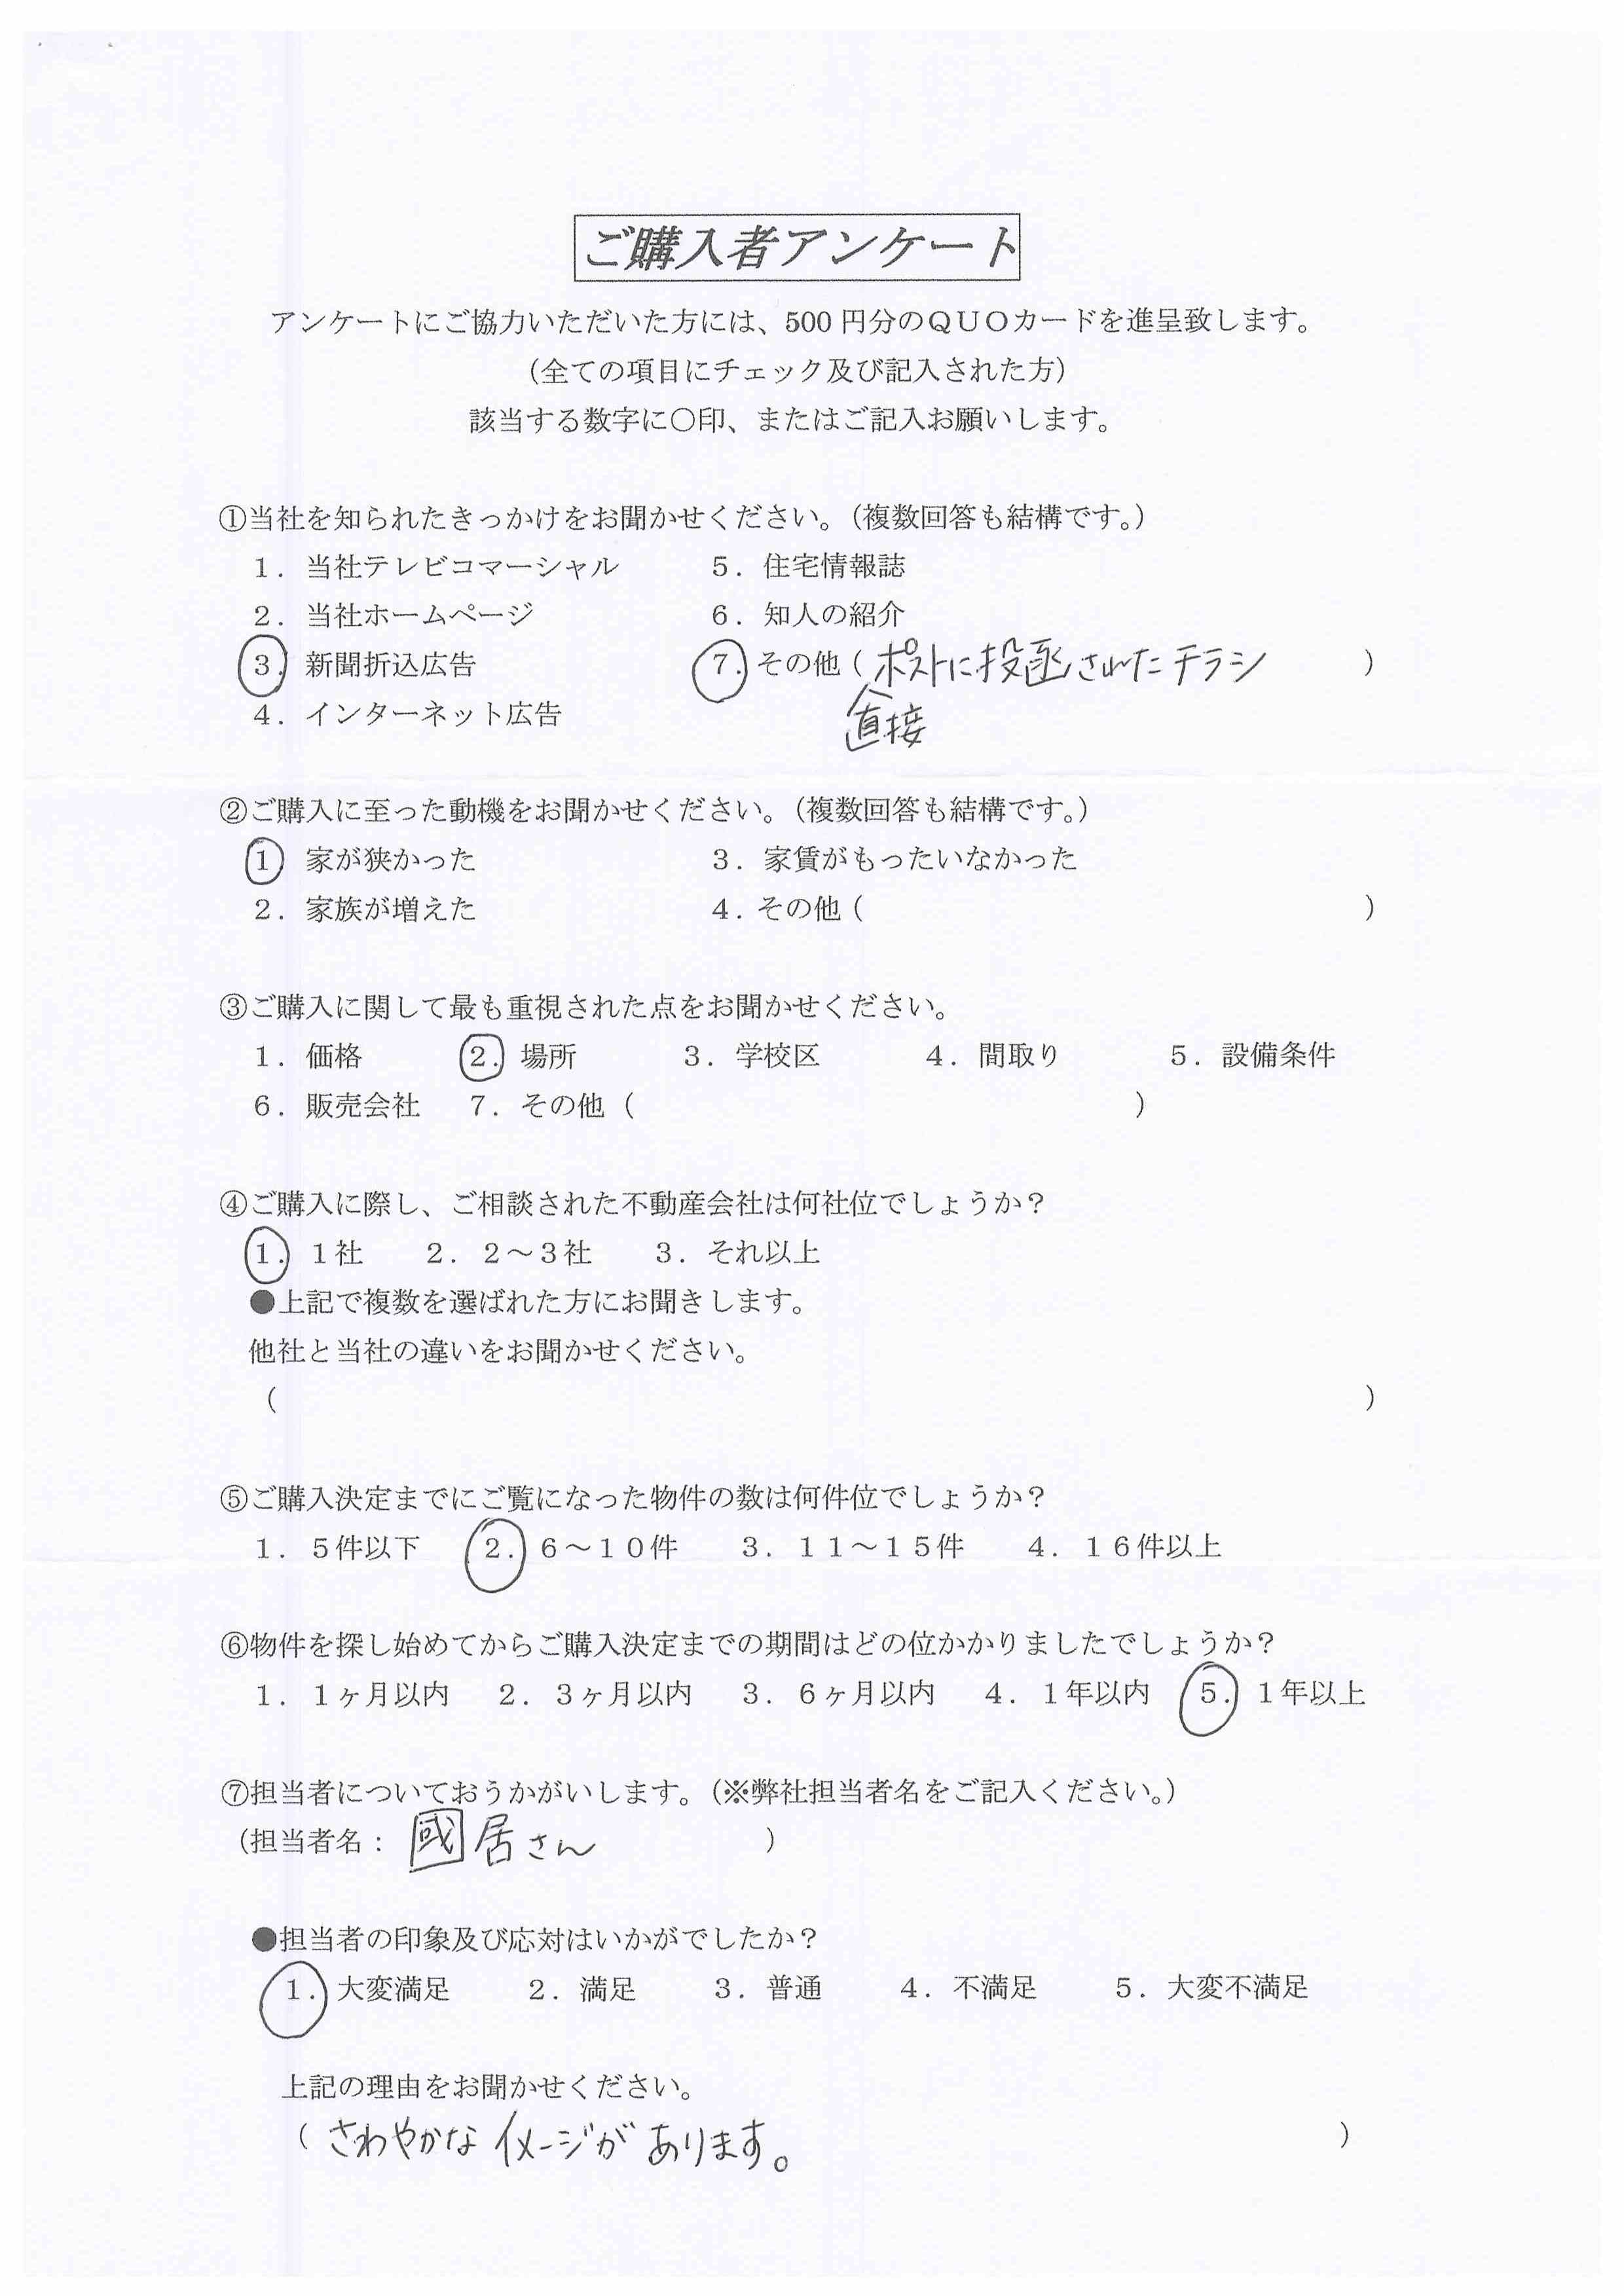 ご購入者アンケート
アンケートにご協力いただいた方には、500円分のQUOカードを進呈致します。
（全ての項目にチェック及び記入された方）
該当する数字に〇印、またはご記入お願いします。
①当社を知られたきっかけをお聞かせください。（複数回答も結構です。）
1．当社テレビコマーシャル 5．住宅情報誌
2．当社ホームページ 6．知人の紹介
3．新聞折込広告 7．その他（直接ポストに投函されたチラシ）
4．インターネット広告
②ご購入に至った動機をお聞かせください。（複数回答も結構です。）
1 家が狭かった 3．家賃がもったいなかった
2．家族が増えた 4．その他（ ）
③ご購入に関して最も重視された点をお聞かせください。
1．価格 2．場所 3．学校区 4．間取り 5．設備条件
6．販売会社 7．その他（ ）
④ご購入に際し、ご相談された不動産会社は何社位でしょうか？
1．1社 2．2～3社 3．それ以上
●上記で複数を選ばれた方にお聞きします。
他社と当社の違いをお聞かせください。
（ ）
⑤ご購入決定までにご覧になった物件の数は何件位でしょうか？
1．5件以下 2．6～10件 3．11～15件 4．16件以上
⑥物件を探し始めてからご購入決定までの期間はどの位かかりましたでしょうか？
1．1ヶ月以内 2．3ヶ月以内 3．6ヶ月以内 4．1年以内 5．1年以上
⑦担当者についておうかがいします。（※弊社担当者名をご記入ください。）
（担当者名：國居さん ）
●担当者の印象及び応対はいかがでしたか？
1．大変満足 2．満足 3．普通 4．不満足 5．大変不満足
上記の理由をお聞かせください。
（さわやかなイメージがあります。 ）